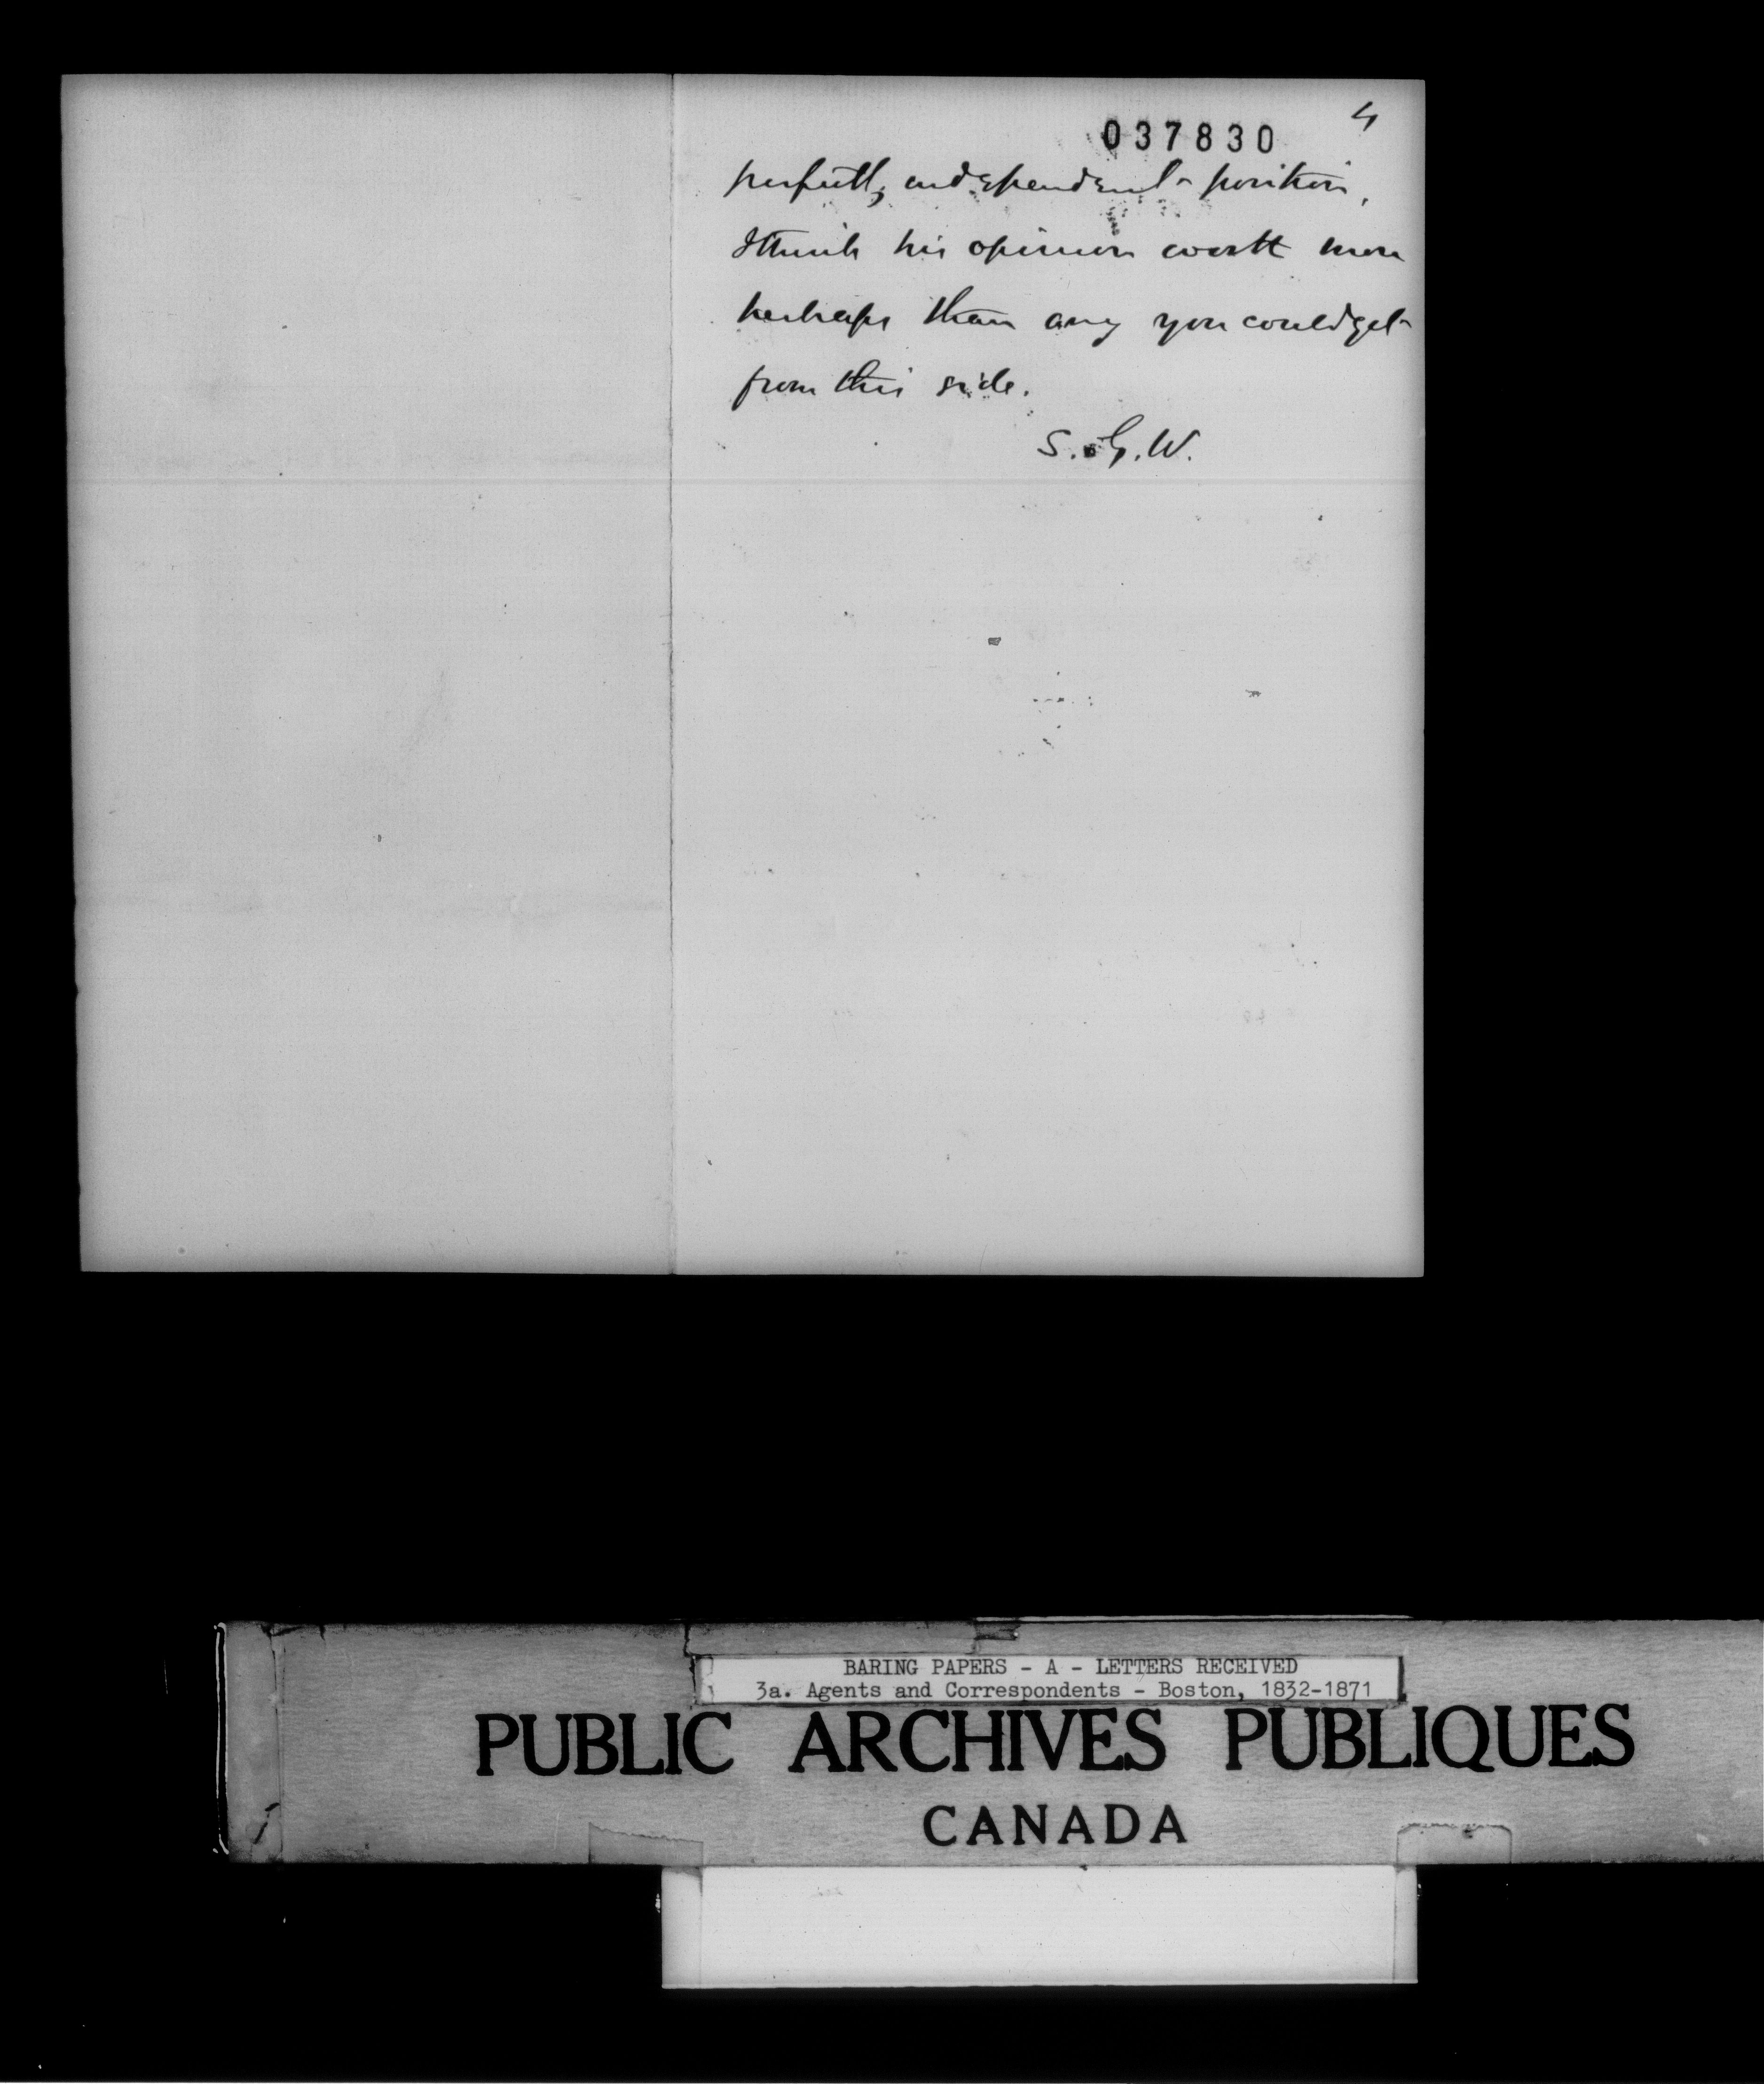 4
037830
perfectly independent position,
I think his opinion worth more
perhaps than any you could get
from this side.
S. G. W.
BARING PAPERS - A - LETTERS RECEIVED
3a. Agents and Correspondents - Boston, 1832-1871
PUBLIC ARCHIVES PUBLIQUES
CANADA